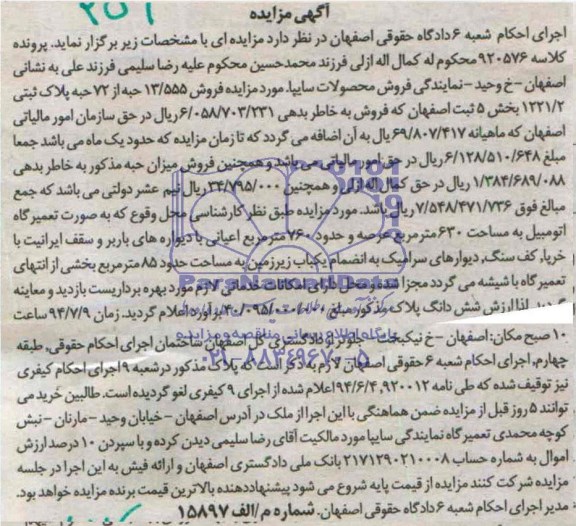 ۲۵۹
آگهی مزایده
اجرای احکام شعبه ۶ دادگاه حقوقی اصفهان در نظر دارد مزایده ای با مشخصات زیر برگزار نماید. پرونده
کلاسه ۹۲۰۵۷۶ محکوم له کمال اله ازلی فرزند محمدحسین محکوم علیه رضا سلیمی فرزند علی به نشانی
اصفهان -خ وحید -نمایندگی فروش محصولات سایپا. مورد مزایده فروش ۱۳/۵۵۵ حبه از ۷۲ حبه پلاک ثبتی
۱۲۲۱/۲ بخش ۵ ثبت اصفهان که فروش به خاطر بدهی ۶/۰۵۸/۷۰۳/۲۳۱ ریال در حق سازمان امور مالیاتی
اصفهان که ماهیانه ۶۹/۸۰۷/۴۱۷ ریال به آن اضافه می گردد که تا زمان مزایده که حدود یک ماه می باشد جمعا
مبلغ ۶/۱۲۸/۵۱۰/۶۴۸ ریال در حق امور مالیاتی می باشد و همچنین فروش میزان حبه مذکور به خاطر بدهی
۱/۳۸۴/۶۸۹/۰۸۸ ریال در حق کمال اله ازلی و همچنین ۳۴/۷۹۵/۰۰۰ ریال نیم عشر دولتی می باشد که جمع
مبالغ فوق ۷/۵۴۸/۴۷۱/۷۳۶ ریال باشد. مورد مزایده طبق نظر کارشناسی محل وقوع که به صورت تعمیرگاه
اتومبیل به مساحت ۶۳۰ مترمربع عرصه و حدود ۷۶۰ مترمربع اعیانی با دیواره های باربر و سقف ایرانیت با
خرپا، کف سنگ, دیوارهای سرامیک به انضمام یکباب زیرزمین به مساحت حدود ۸۵ مترمربع بخشی از انتهای
تعمیرگاه با شیشه می گردد مجزا شده و محل دارای امکانات خدماتی لازم مورد بهره برداریست بازدید و معاینه
گردید. لذا ارزش شش دانگ پلاک مذکور مبلغ ریال برآورد اعلام گردید. زمان ۹۴/۷/۹ ساعت
۱۰ صبح مکان: اصفهان -خ نیکبخت جلوتر از دادگستری کل اصفهان ساختمان اجرای احکام حقوقی, طبقه
چهارم, اجرای احکام شعبه ۶ حقوقی اصفهان لازم به ذکر است که پلاک مذکور در شعبه ۹ اجرای احکام کیفری
نیز توقیف شده که طی نامه ۹۲۰۰۱۲, ۹۴/۶/۴ اعلام شده از اجرای ۹ کیفری لغو گردیده است. طالبین خرید می
توانند ۵ روز قبل از مزایده ضمن هماهنگی با این اجرا از ملک در آدرس اصفهان -خیابان وحید -مارنان -نبش
کوچه محمدی تعمیرگاه نمایندگی سایپا مورد مالکیت آقای رضا سلیمی دیدن کرده و با سپردن ۱۰ درصد ارزش
اموال به شماره حساب ۲۱۷۱۲۹۰۲۱۰۰۰۸ بانک ملی دادگستری اصفهان و ارائه فیش به این اجرا در جلسه
مزایده شرکت کنند مزایده از قیمت پایه شروع می شود پیشنهاددهنده بالاترین قیمت برنده مزایده خواهد بود.
مدیر اجرای احکام شعبه ۶ دادگاه حقوقی اصفهان. شماره م/الف ۱۵۸۹۷
ParsNamadData
پایگاه اطلاع رسانی مناقصه و مزایده
۰۲۱-۸۸۳۴۹۶۷۰-۵